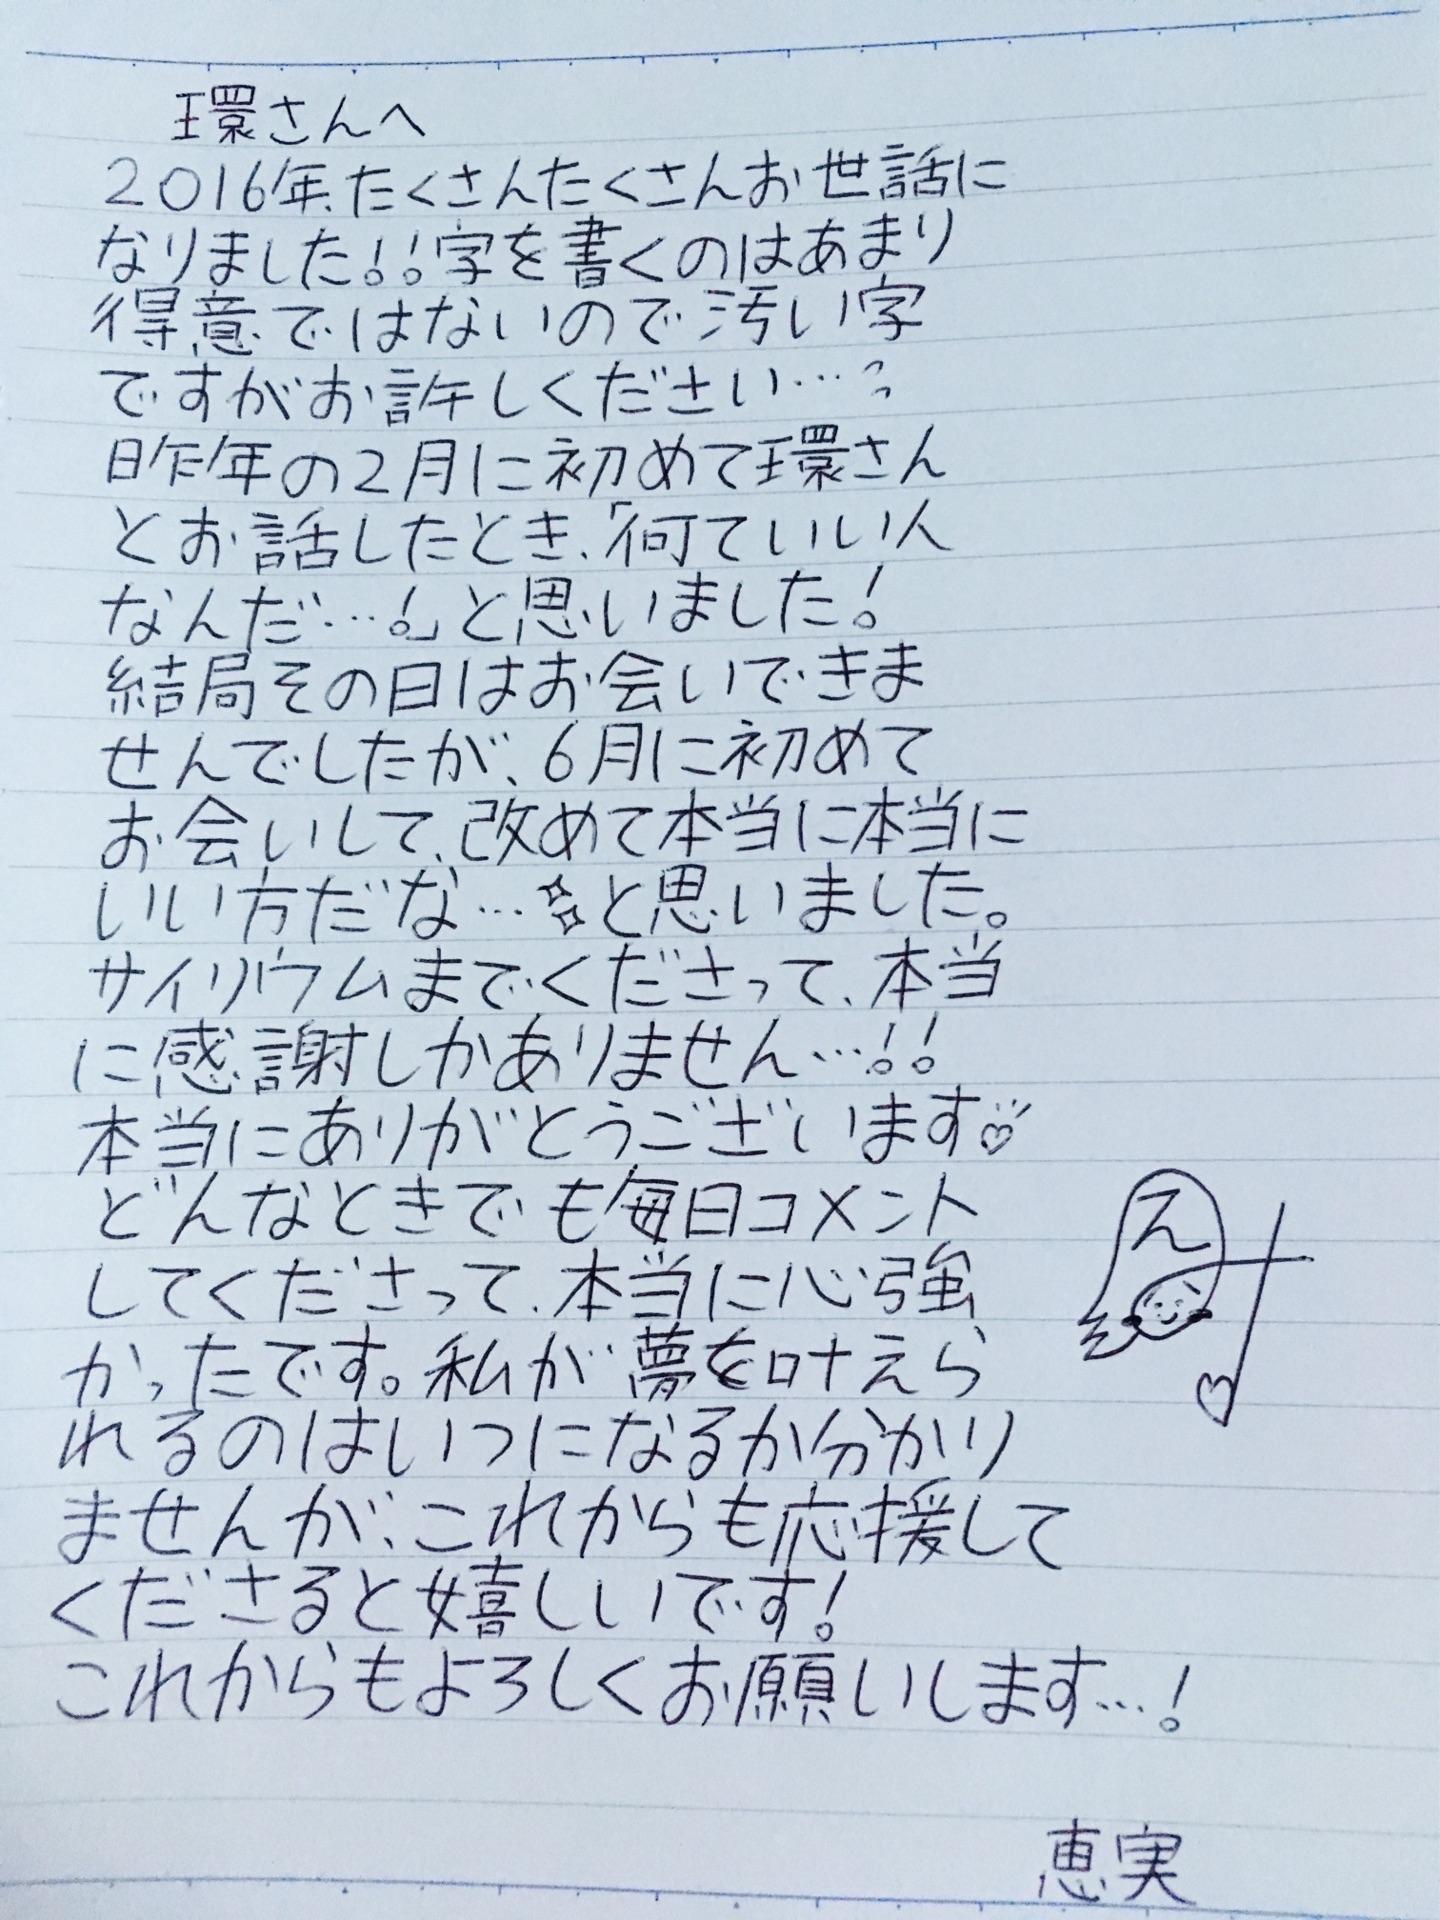 環さんへ
2016年、たくさんたくさんお世話に
なりました!!字を書くのはあまり
得意ではないので汚い字
ですがお許しください…?
昨年の2月に初めて環さん
とお話したとき、「何ていい人
なんだ…!」と思いました!
結局その日はお会いできま
せんでしたが、6月に初めて
お会いして、改めて本当に本当に
いい方だな…と思いました。
サイリウムまでくださって、本当
に感謝しかありません…!!
本当にありがとうございます♡
どんなときでも毎日コメント
してくださって、本当に心強
かったです。私が夢を叶えら
れるのはいつになるか分かり
ませんが、これからも応援して
くださると嬉しいです!
これからもよろしくお願いします…!
恵実